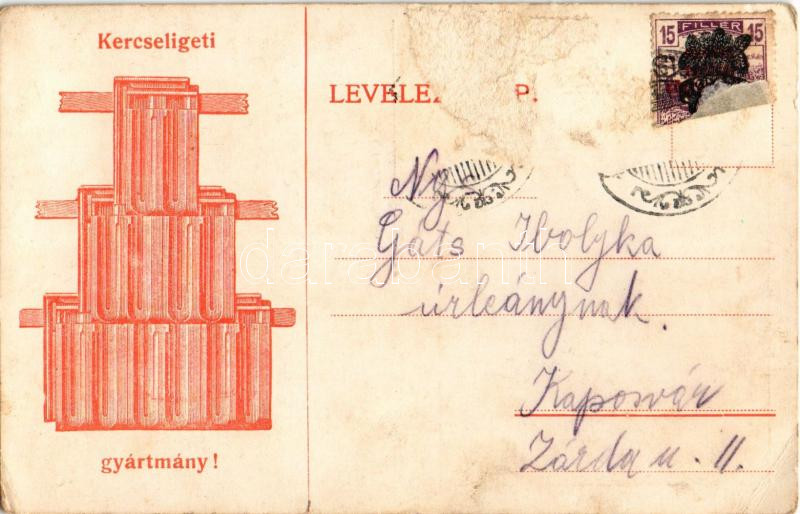 Kercseligeti
gyártmány!
FILLER
15 15
LEVELE. P.
Ny
Gáts Ibolyka
úrleánynak.
Kaposvár
Zárda u. 11.
darabanth